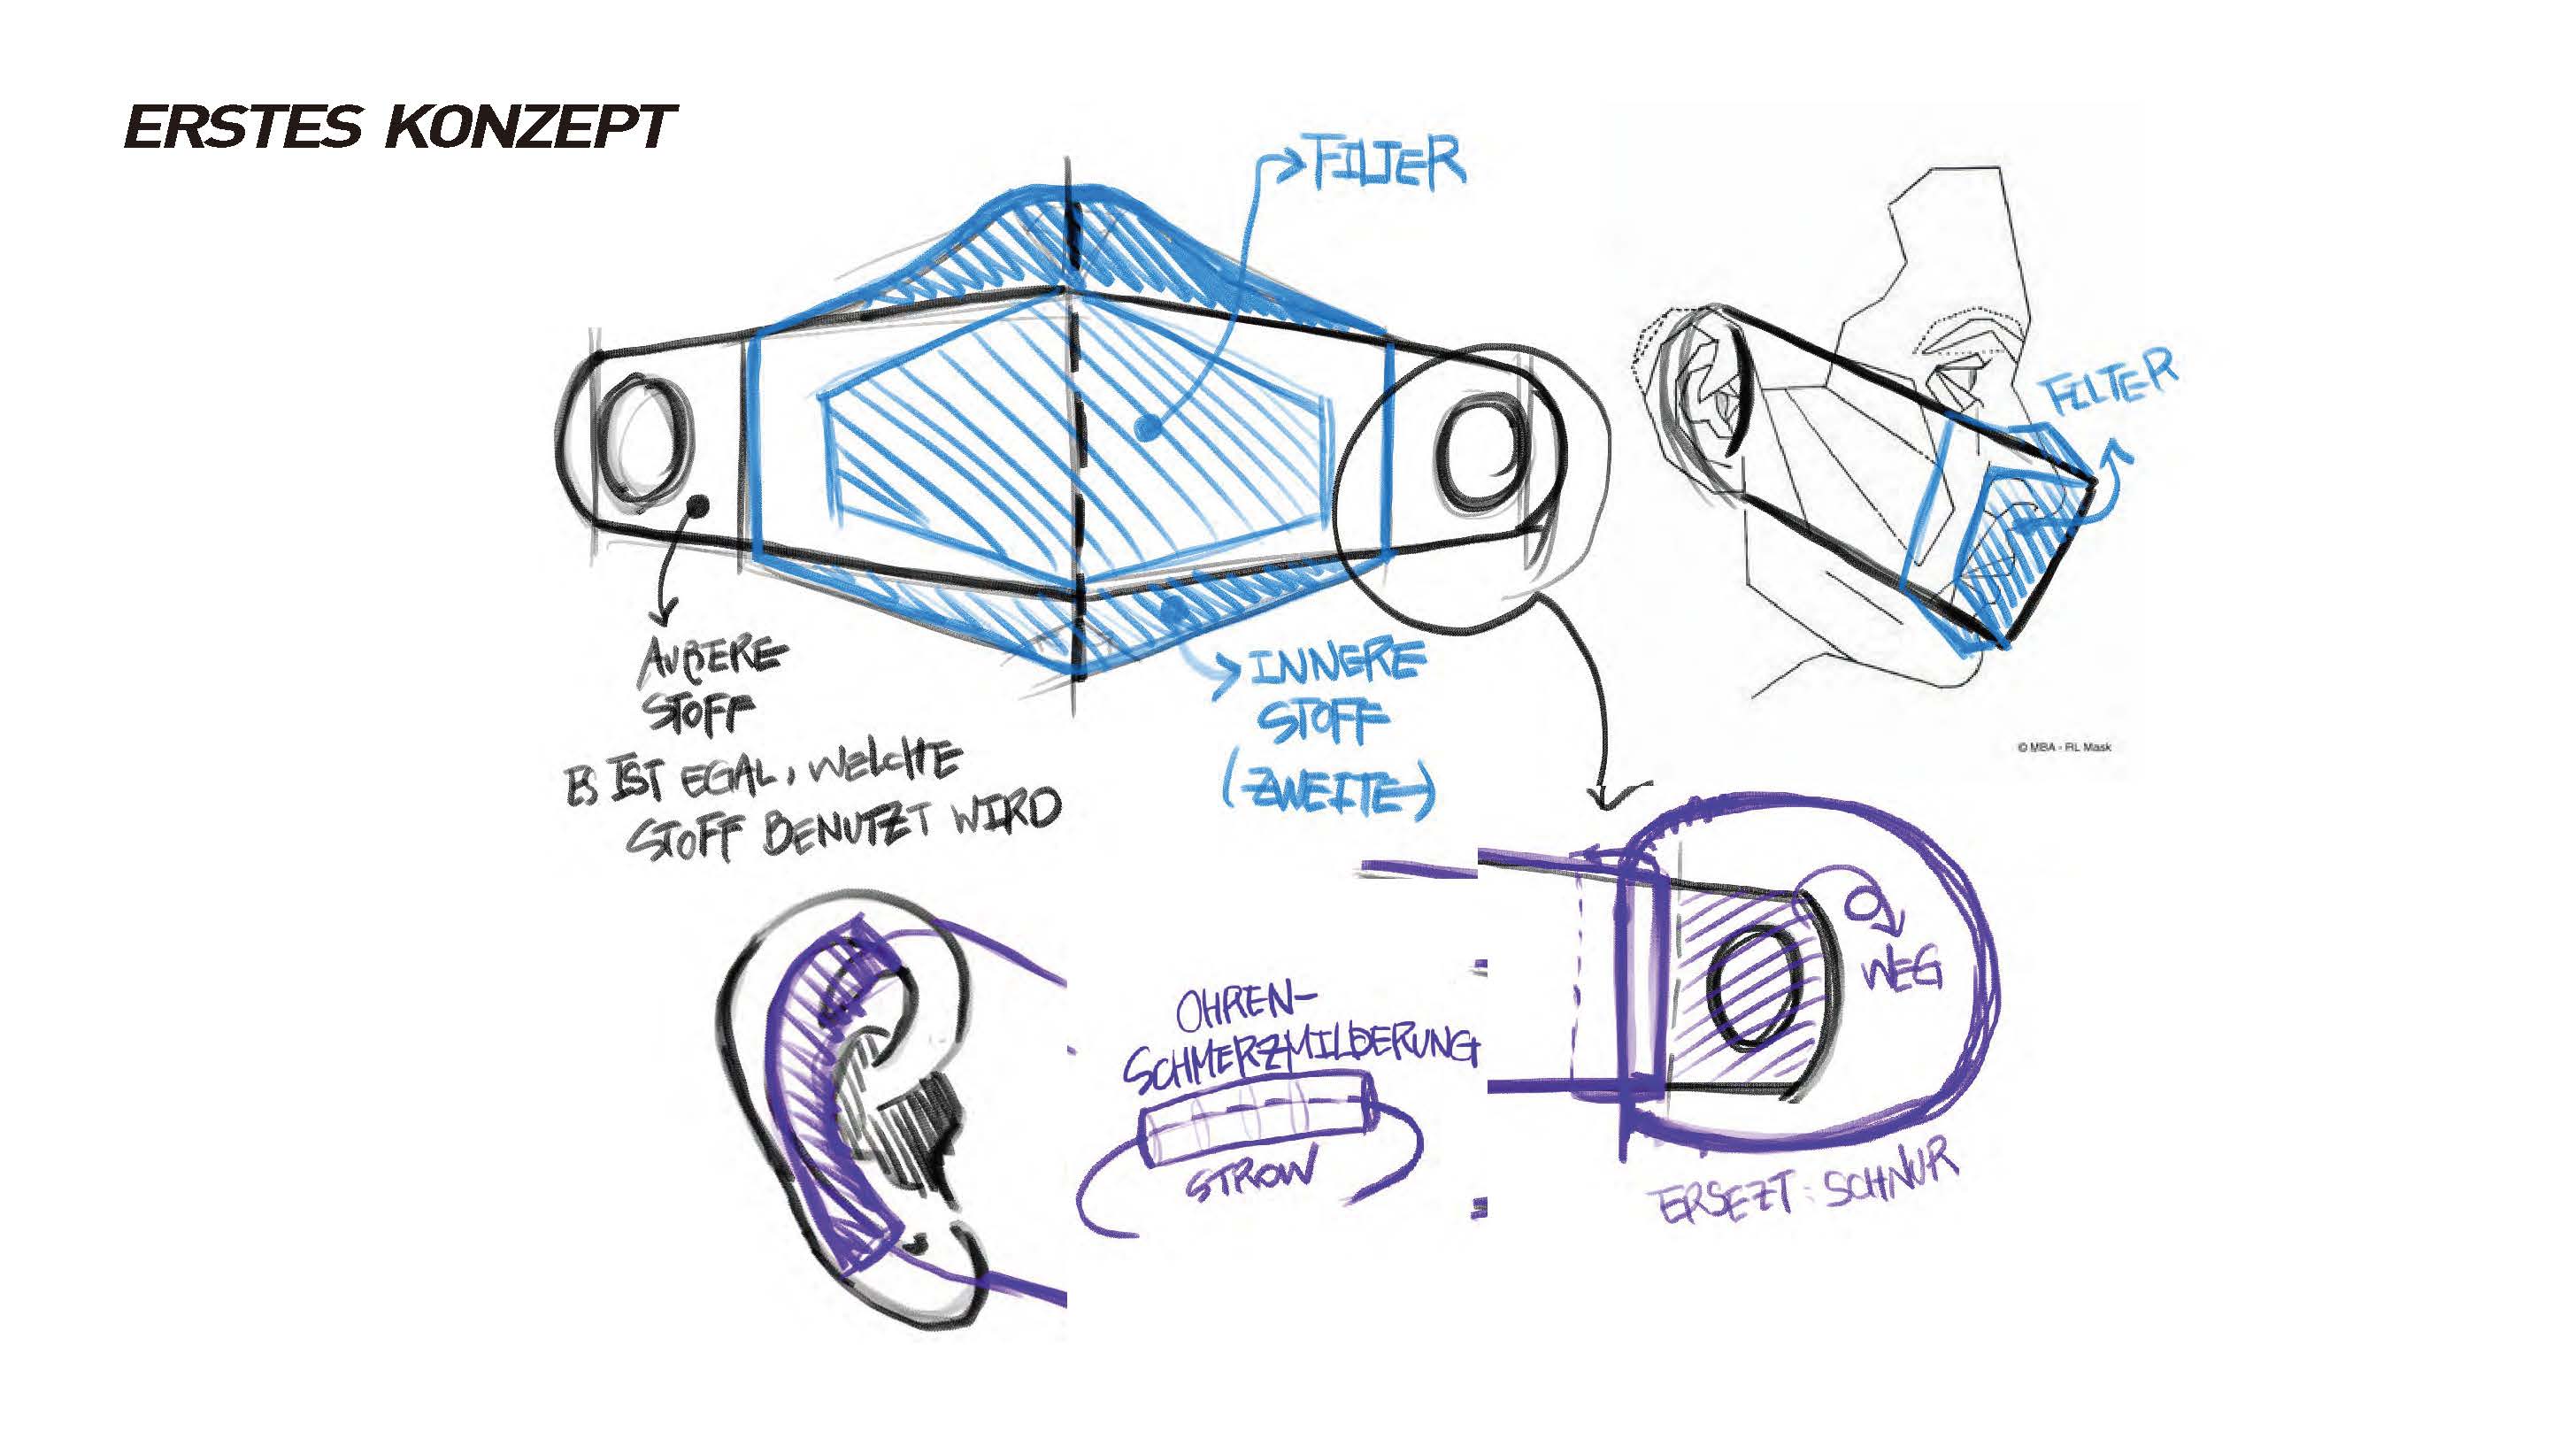 ERSTES KONZEPT
FILTER
FILTER
ÄUßERE
STOFF
ES IST EGAL, WELCHE
STOFF BENUTZT WIRD
INNERE
STOFF
(ZWEITE)
© MBA - RL Mask
WEG
OHREN-
SCHMERZMILDERUNG
STROW
ERSEZT : SCHNUR